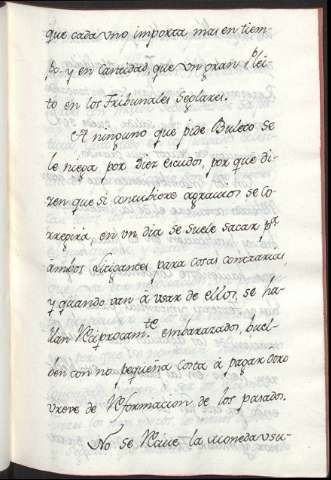 que cada vno importa mas en tiem-
po, y en cantidad, que vn gran Plei-
to en los Tribunales Seglares.
A ninguno que pide Buleto se
le niega por Diez escudos, por que di-
zen que si contubiere agravios se co-
rregira, en vn dia se suele sacar pr
ambos Litigantes para cosas contrarias
y quando van à usar de ellos, se ha-
llan Reciprocamte embarazados, buel-
ben con no pequeña costa à pagar otro
vreve de Reformacion de los pasados.
No se Recive la moneda usu-